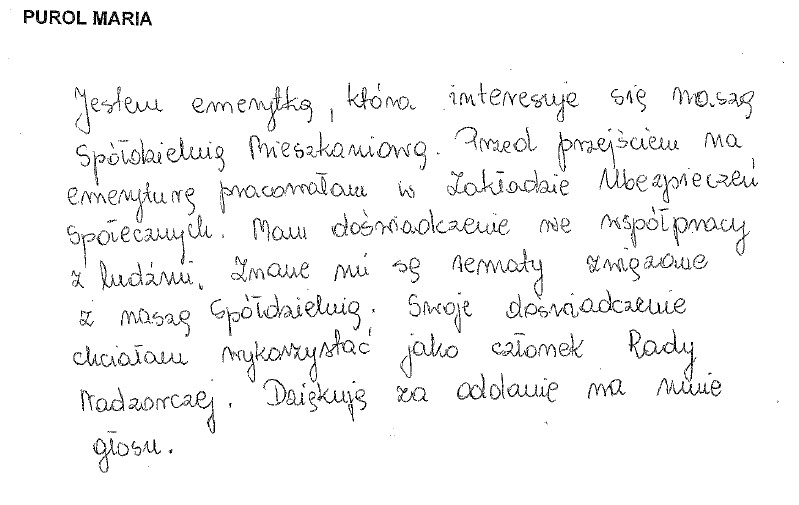 PUROL MARIA
Jestem emerytką, która interesuje się naszą
Spółdzielnią Mieszkaniową. Przed przejściem na
emeryturę pracowałam w Zakładzie Ubezpieczeń
Społecznych. Mam doświadczenie we współpracy
z ludźmi. Znane mi są tematy związane
z naszą Spółdzielnią. Swoje doświadczenie
chciałam wykorzystać jako członek Rady
Nadzorczej. Dziękuję za oddanie na mnie
głosu.